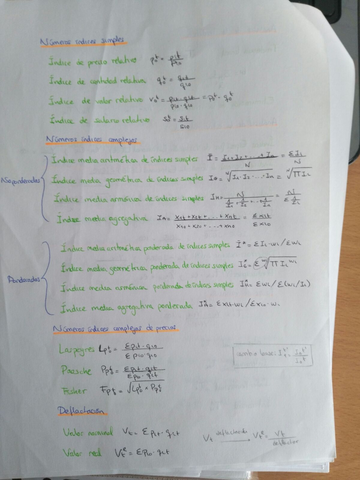 Números índices simples
Índice de precio relativo p₀ᵗ = pᵢₜ/pᵢ₀
Índice de cantidad relativa q₀ᵗ = qᵢₜ/qᵢ₀
Índice de valor relativo v₀ᵗ = pᵢₜ·qᵢₜ/pᵢ₀·qᵢ₀ = p₀ᵗ·q₀ᵗ
Índice de salario relativo s₀ᵗ = sᵢₜ/sᵢ₀
Números índices complejos
No ponderados
Índice media aritmética de índices simples Ī = I₁+I₂+...+Iₙ/N = ΣIᵢ/N
Índice media geométrica de índices simples I_G = ᴺ√I₁·I₂·...Iₙ = ᴺ√ΠIᵢ
Índice media armónica de índices simples I_H = N/(1/I₁+1/I₂+...+1/Iₙ) = N/Σ1/Iᵢ
Índice media agregativa I_A = x₁ₜ+x₂ₜ+...+xₙₜ/x₁₀+x₂₀+...+xₙ₀ = Σxᵢₜ/Σxᵢ₀
Ponderados
Índice media aritmética ponderada de índices simples Ī* = ΣIᵢ·wᵢ/Σwᵢ
Índice media geométrica ponderada de índices simples
Índice media armónica ponderada de índices simples I*_H = Σwᵢ/Σ(wᵢ/Iᵢ)
Índice media agregativa ponderada I*_A = Σxᵢₜ·wᵢ/Σxᵢ₀·wᵢ
Números índices complejos de precios
Laspeyres Lpᵗ₀ = Σpᵢₜ·qᵢ₀/Σpᵢ₀·qᵢ₀
Paasche Ppᵗ₀ = Σpᵢₜ·qᵢₜ/Σpᵢ₀·qᵢₜ
Fisher Fpᵗ₀ = √Lpᵗ₀·Ppᵗ₀
cambio base:
Deflactación
Valor nominal Vₜ = Σpᵢₜ·qᵢₜ
Valor real Vₜᴿ = Σpᵢ₀·qᵢₜ
Vₜ deflactando → Vₜᴿ = Vₜ/deflactor